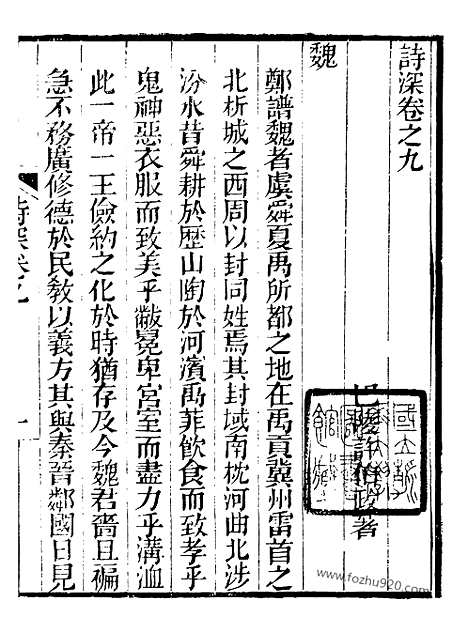 詩深卷之九
巴陵許伯政著
魏
鄭譜魏者虞舜夏禹所都之地在禹貢冀州雷首之
北析城之西周以封同姓焉其封域南枕河曲北涉
汾水昔舜耕於歷山陶於河濱禹菲飲食而致孝乎
鬼神惡衣服而致美乎黻冕卑宮室而盡力乎溝洫
此一帝一王儉約之化於時猶存及今魏君嗇且褊
急不務廣修德於民教以義方其與秦晉鄰國日見
詩深卷九
一
www.fozhu920.com